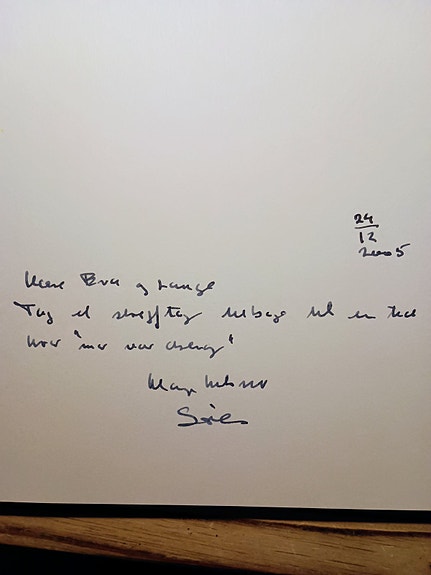 24
12
2005
Kære Eva og
Tag et strejftog tilbage til en tid
hvor "mor var dreng"
Mange hilsner